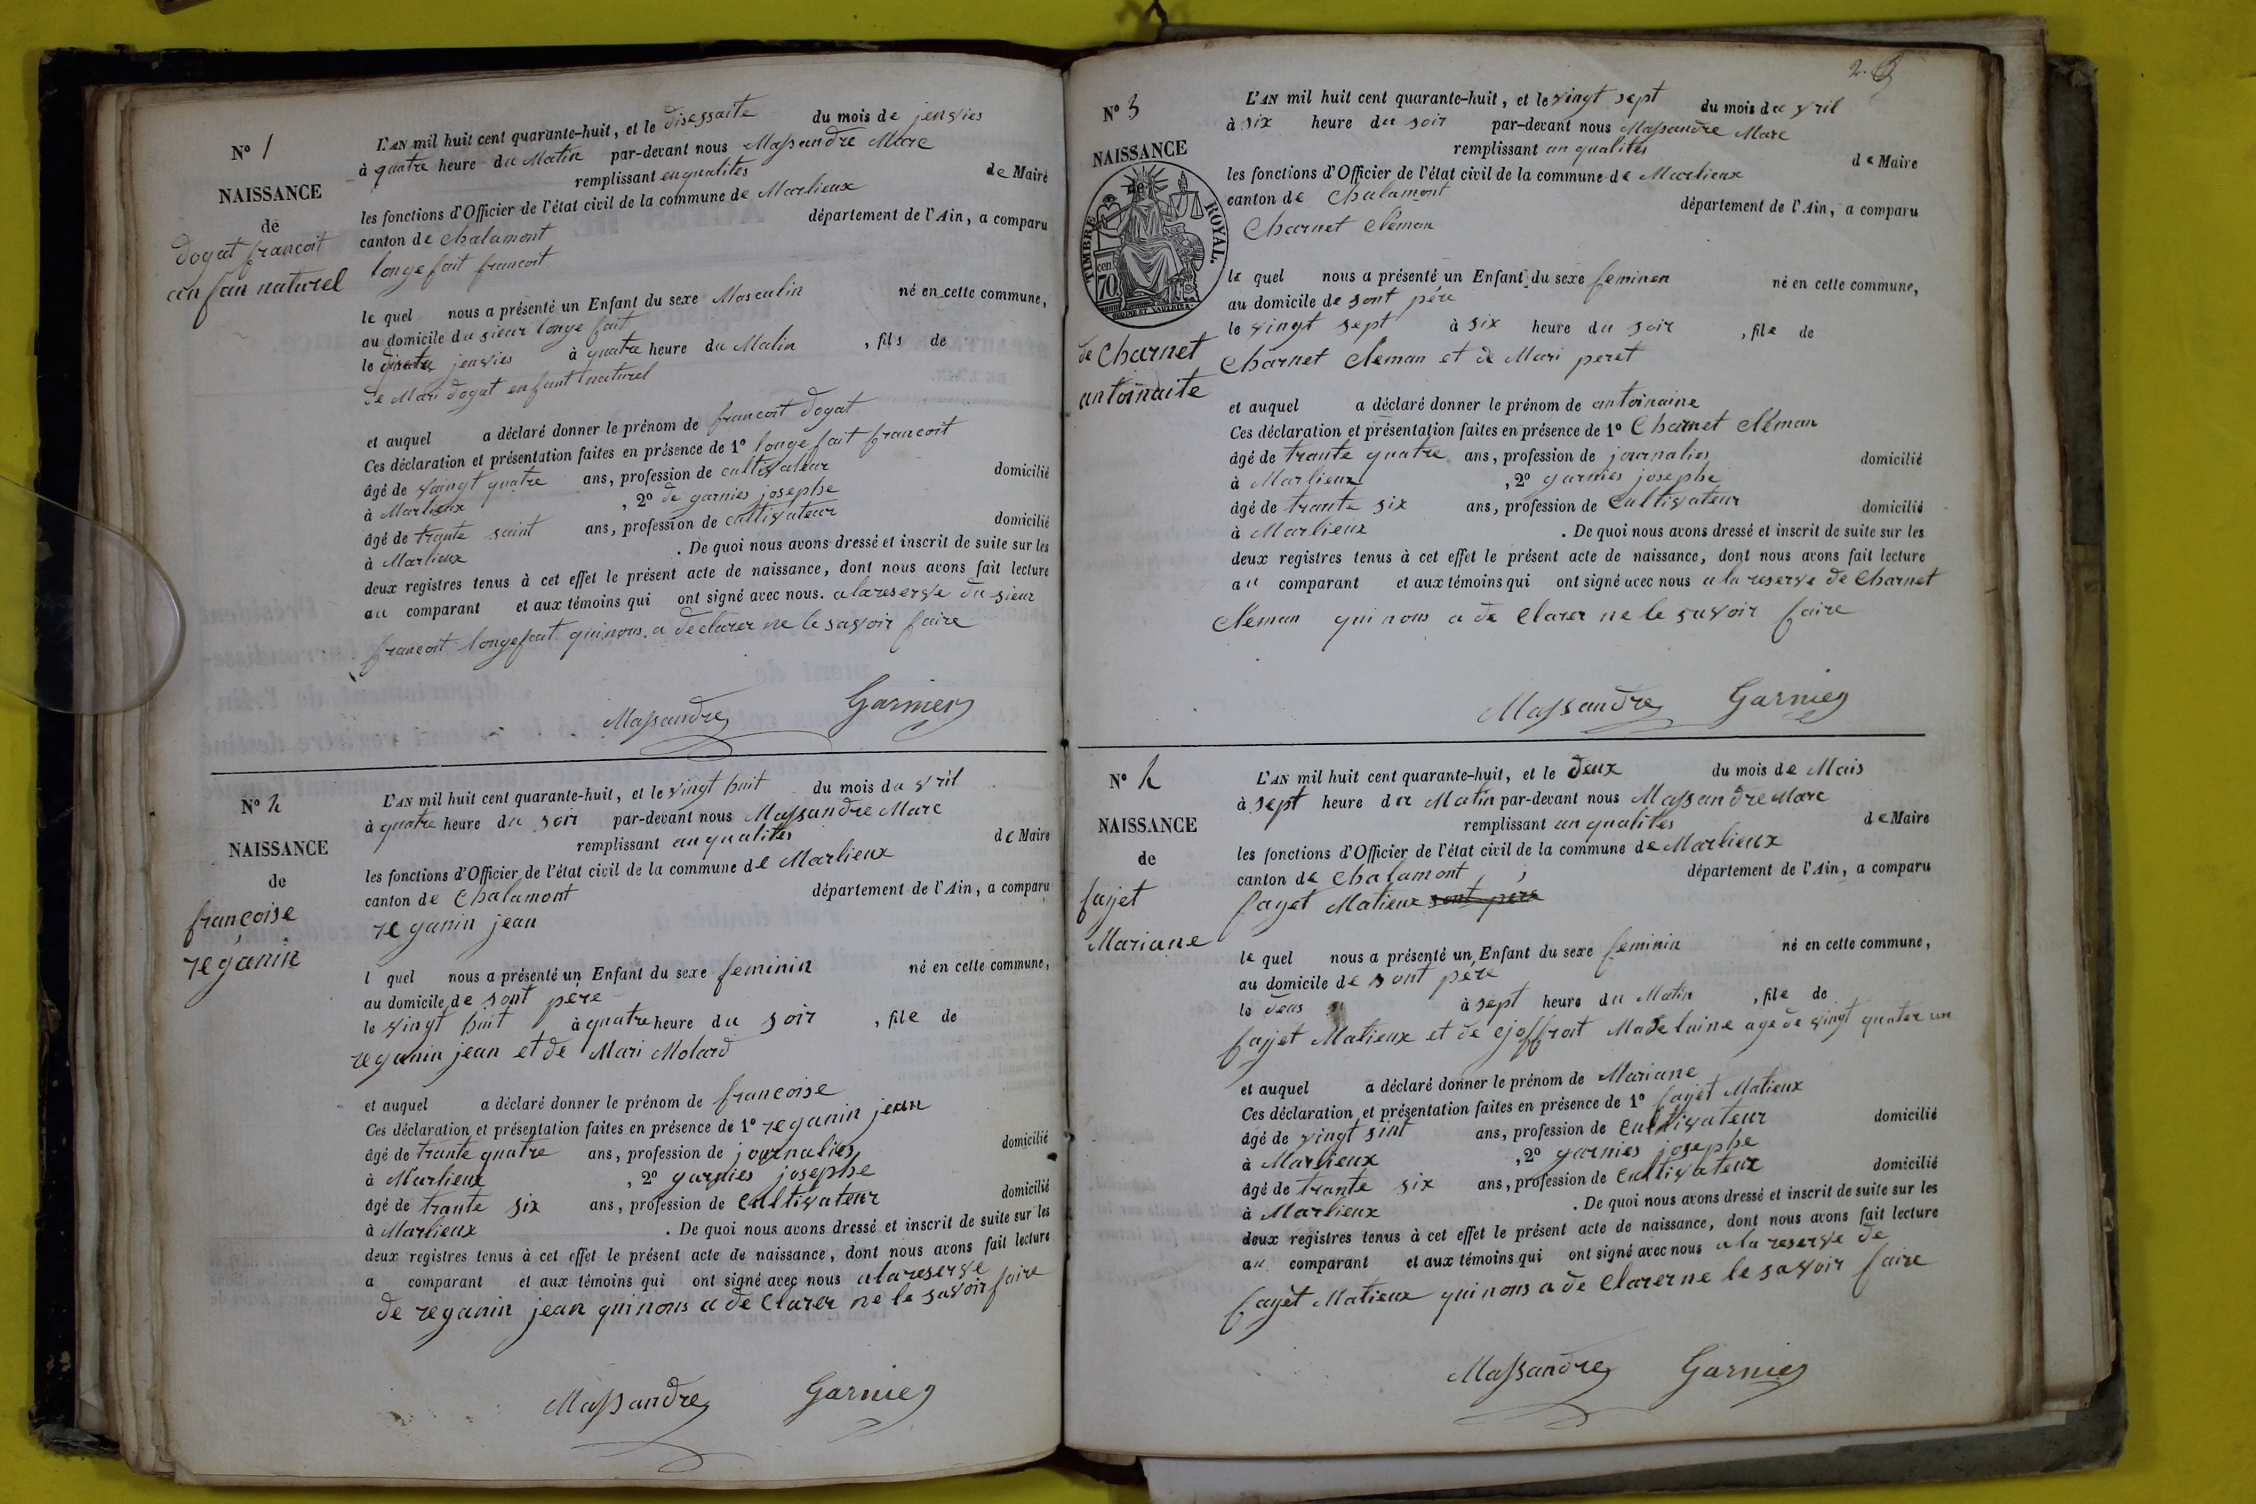 N° 1
NAISSANCE
de
dogat francoit
enfan naturel
L'AN mil huit cent quarante-huit, et le disessaite du mois de jenvies
à quatre heure du Matin par-devant nous Massandre Marc
remplissant en qualites de Maire
les fonctions d'Officier de l'état civil de la commune de Marlieux
canton de chalamont département de l'Ain, a comparu
longe fait francoit
le quel nous a présenté un Enfant du sexe Masculin né en cette commune,
au domicile du sieur longe fait
le jenvies à quatre heure du Matin , fils de
de Mari dogat enfant naturel
et auquel a déclaré donner le prénom de francoit dogat
Ces déclaration et présentation faites en présence de 1° longe fait francoit
âgé de vaingt quatre ans, profession de cultivateur domicilié
à Marlieux , 2° de garnies josephe
âgé de trante saint ans, profession de cultivateur domicilié
à Marlieux . De quoi nous avons dressé et inscrit de suite sur les
deux registres tenus à cet effet le présent acte de naissance, dont nous avons fait lecture
au comparant et aux témoins qui ont signé avec nous. a la reserve du sieur
francoit longefait qui nous a declarer ne le savoir faire
Massandre Garnier
N° 2
NAISSANCE
de
françoise
reganin
L'AN mil huit cent quarante-huit, et le vingt huit du mois da vril
à quatre heure du soir par-devant nous Massandre Marc
remplissant an qualites de Maire
les fonctions d'Officier de l'état civil de la commune de Marlieux
canton de Chalamont département de l'Ain, a comparu
reganin jean
l quel nous a présenté un Enfant du sexe feminin né en cette commune,
au domicile de sont père
le vingt huit à quatre heure du soir , file de
reganin jean et de Mari Molard
et auquel a déclaré donner le prénom de francoise
Ces déclaration et présentation faites en présence de 1° reganin jean
âgé de trante quatre ans, profession de journalies domicilié
à Marlieux , 2° garnies josephe
âgé de trante six ans, profession de cultivateur domicilié
à Marlieux . De quoi nous avons dressé et inscrit de suite sur les
deux registres tenus à cet effet le présent acte de naissance, dont nous avons fait lecture
a comparant et aux témoins qui ont signé avec nous a la reserve
de reganin jean qui nous a de Clarer ne le savoir faire
Massandre Garnier
2.
N° 3
NAISSANCE
de
TIMBRE ROYAL.
cen. 70
de Charnet
antoinaite
L'AN mil huit cent quarante-huit, et le vingt sept du mois da vril
à six heure du soir par-devant nous Massandre Marc
remplissant an qualites de Maire
les fonctions d'Officier de l'état civil de la commune de Marlieux
canton de Chalamont département de l'Ain, a comparu
Charnet Cléman
le quel nous a présenté un Enfant du sexe feminen né en cette commune,
au domicile de sont père
le vingt sept à six heure du soir , file de
Charnet Cleman et de Mari peret
et auquel a déclaré donner le prénom de antoinaine
Ces déclaration et présentation faites en présence de 1° Charnet Cléman
âgé de trante quatre ans, profession de journalies domicilié
à Marlieux , 2° garnies josephe
âgé de trante six ans, profession de Cultivateur domicilié
à Marlieux . De quoi nous avons dressé et inscrit de suite sur les
deux registres tenus à cet effet le présent acte de naissance, dont nous avons fait lecture
au comparant et aux témoins qui ont signé avec nous a la reserve de Charnet
Cléman qui nous a de Clarer ne le savoir faire
Massandre Garnier
N° 4
NAISSANCE
de
fayet
Mariane
L'AN mil huit cent quarante-huit, et le deux du mois de Mais
à sept heure du Matin par-devant nous Massandre Marc
remplissant an qualites de Maire
les fonctions d'Officier de l'état civil de la commune de Marlieux
canton de Chalamont département de l'Ain, a comparu
fayet Matieux sont père
le quel nous a présenté un Enfant du sexe feminin né en cette commune,
au domicile de sont père
le deus à sept heure du Matin , file de
fayet Matieux et de ejoffrait Madelaine age de vingt quater un
et auquel a déclaré donner le prénom de Mariane
Ces déclaration et présentation faites en présence de 1° fayet Matieux
âgé de vingt sint ans, profession de Cultivateur domicilié
à Marlieux , 2° garnies josephe
âgé de trante six ans, profession de Cultivateur domicilié
à Marlieux . De quoi nous avons dressé et inscrit de suite sur les
deux registres tenus à cet effet le présent acte de naissance, dont nous avons fait lecture
au comparant et aux témoins qui ont signé avec nous a la reserve de
fayet Matieux qui nous a de Clarer ne le savoir faire
Massandre Garnier